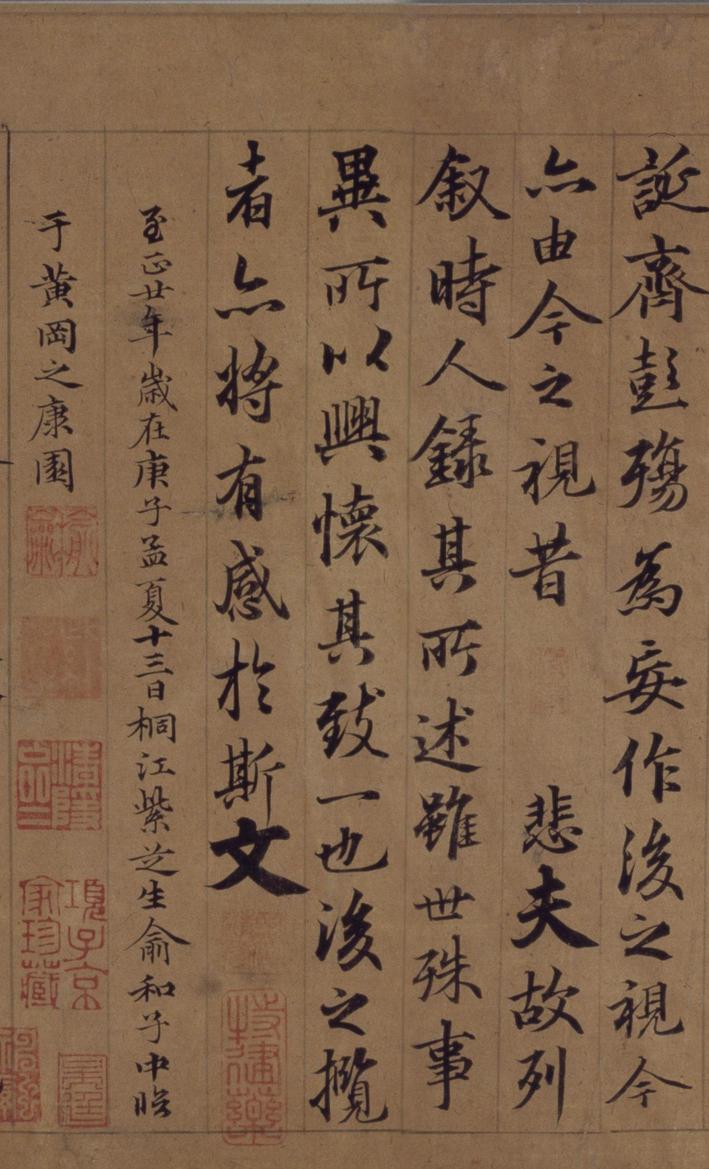 誕齊彭殤為妄作後之視今
亦由今之視昔 悲夫故列
叙時人錄其所述雖世殊事
異所以興懷其致一也後之攬
者亦將有感於斯文
至正廿年歲在庚子孟夏十三日桐江紫芝生俞和子中臨
于黃岡之康園
項子京
家珍藏